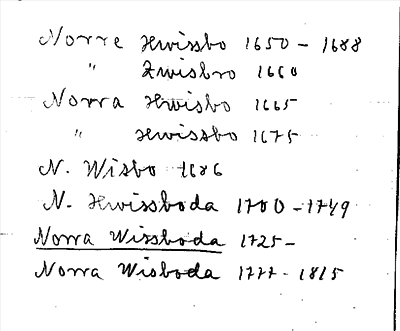 Norre Hwissbo 1650 - 1688
" Hwisbro 1660
Norra Hwisbo 1665
" Hwissbo 1675
N. Wisbo 1686
N. Hwissboda 1700 - 1749
Norra Wissboda 1725 -
Norra Wisboda 1777 - 1815